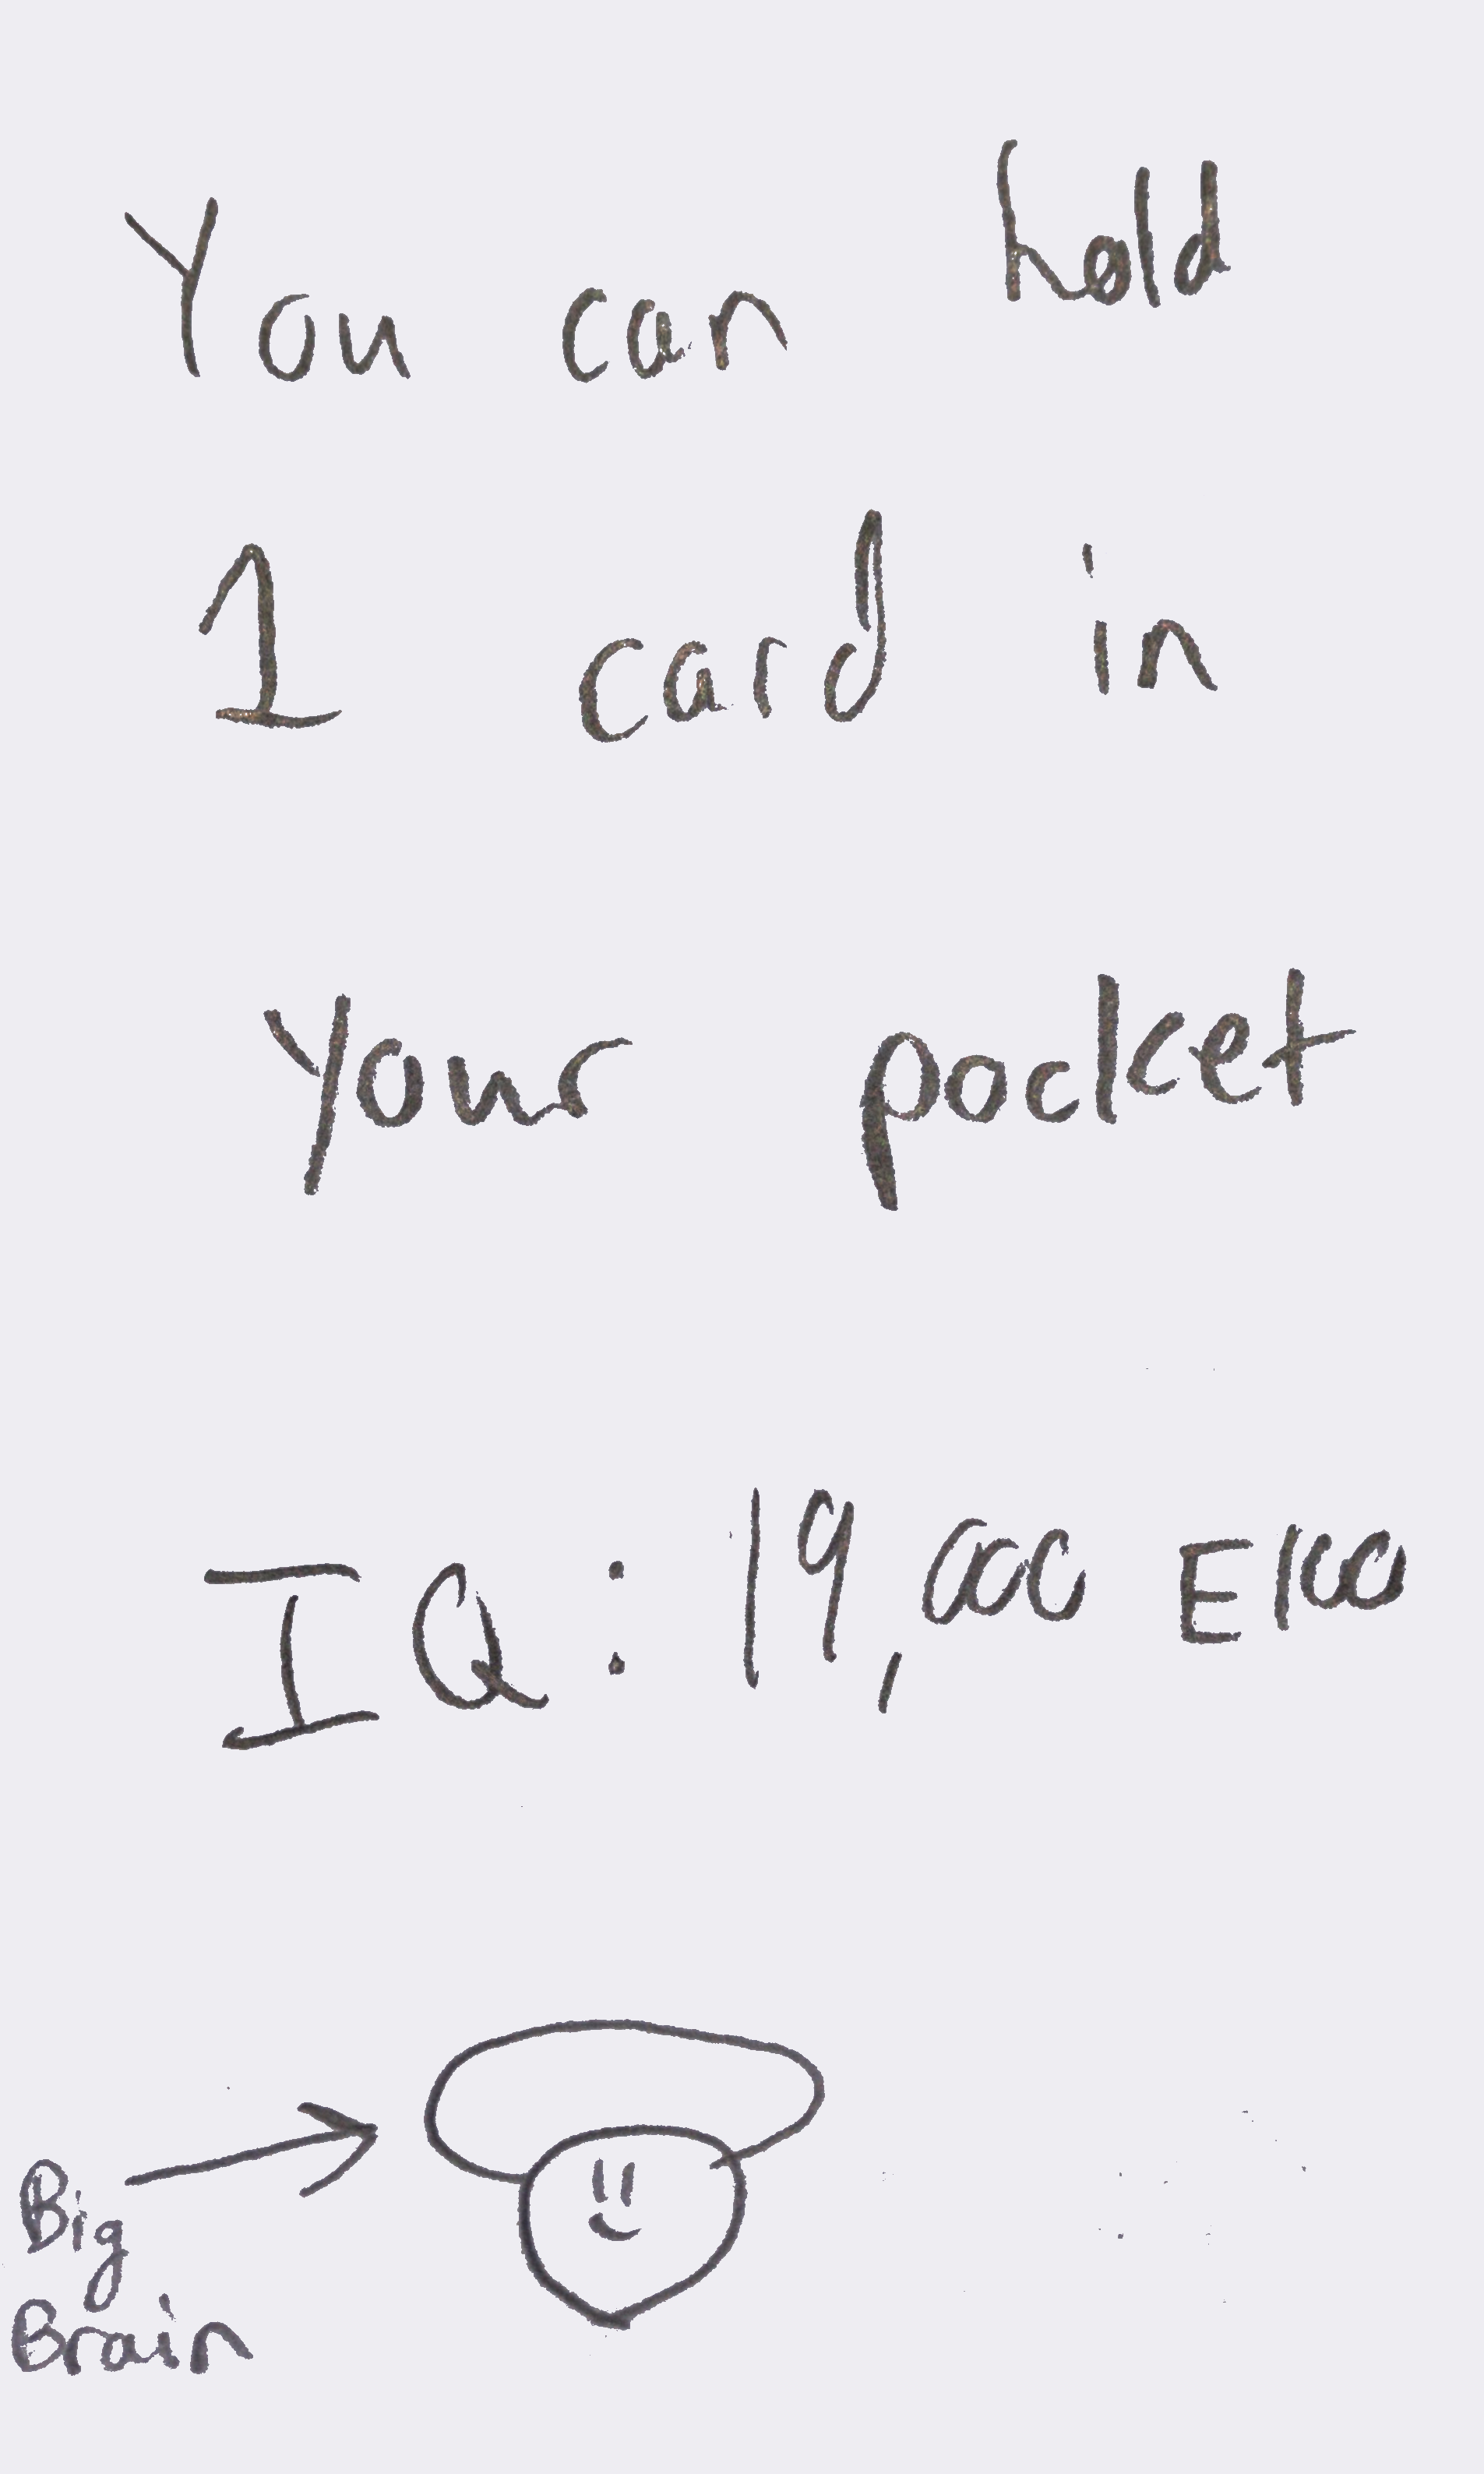 You can hold
1 card in
your pocket
IQ: 19,000 E100
Big
Brain